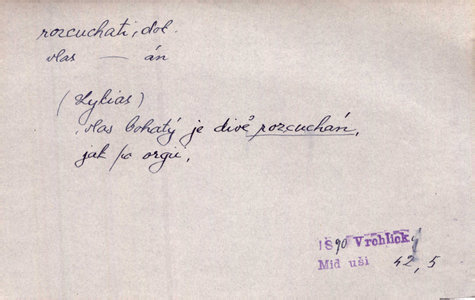 rozcuchati, dok.
vlas — án
(Lykias)
vlas bohatý je divě rozcuchán,
jak po orgii,
1890 Vrchlický
Mid uši 42, 5